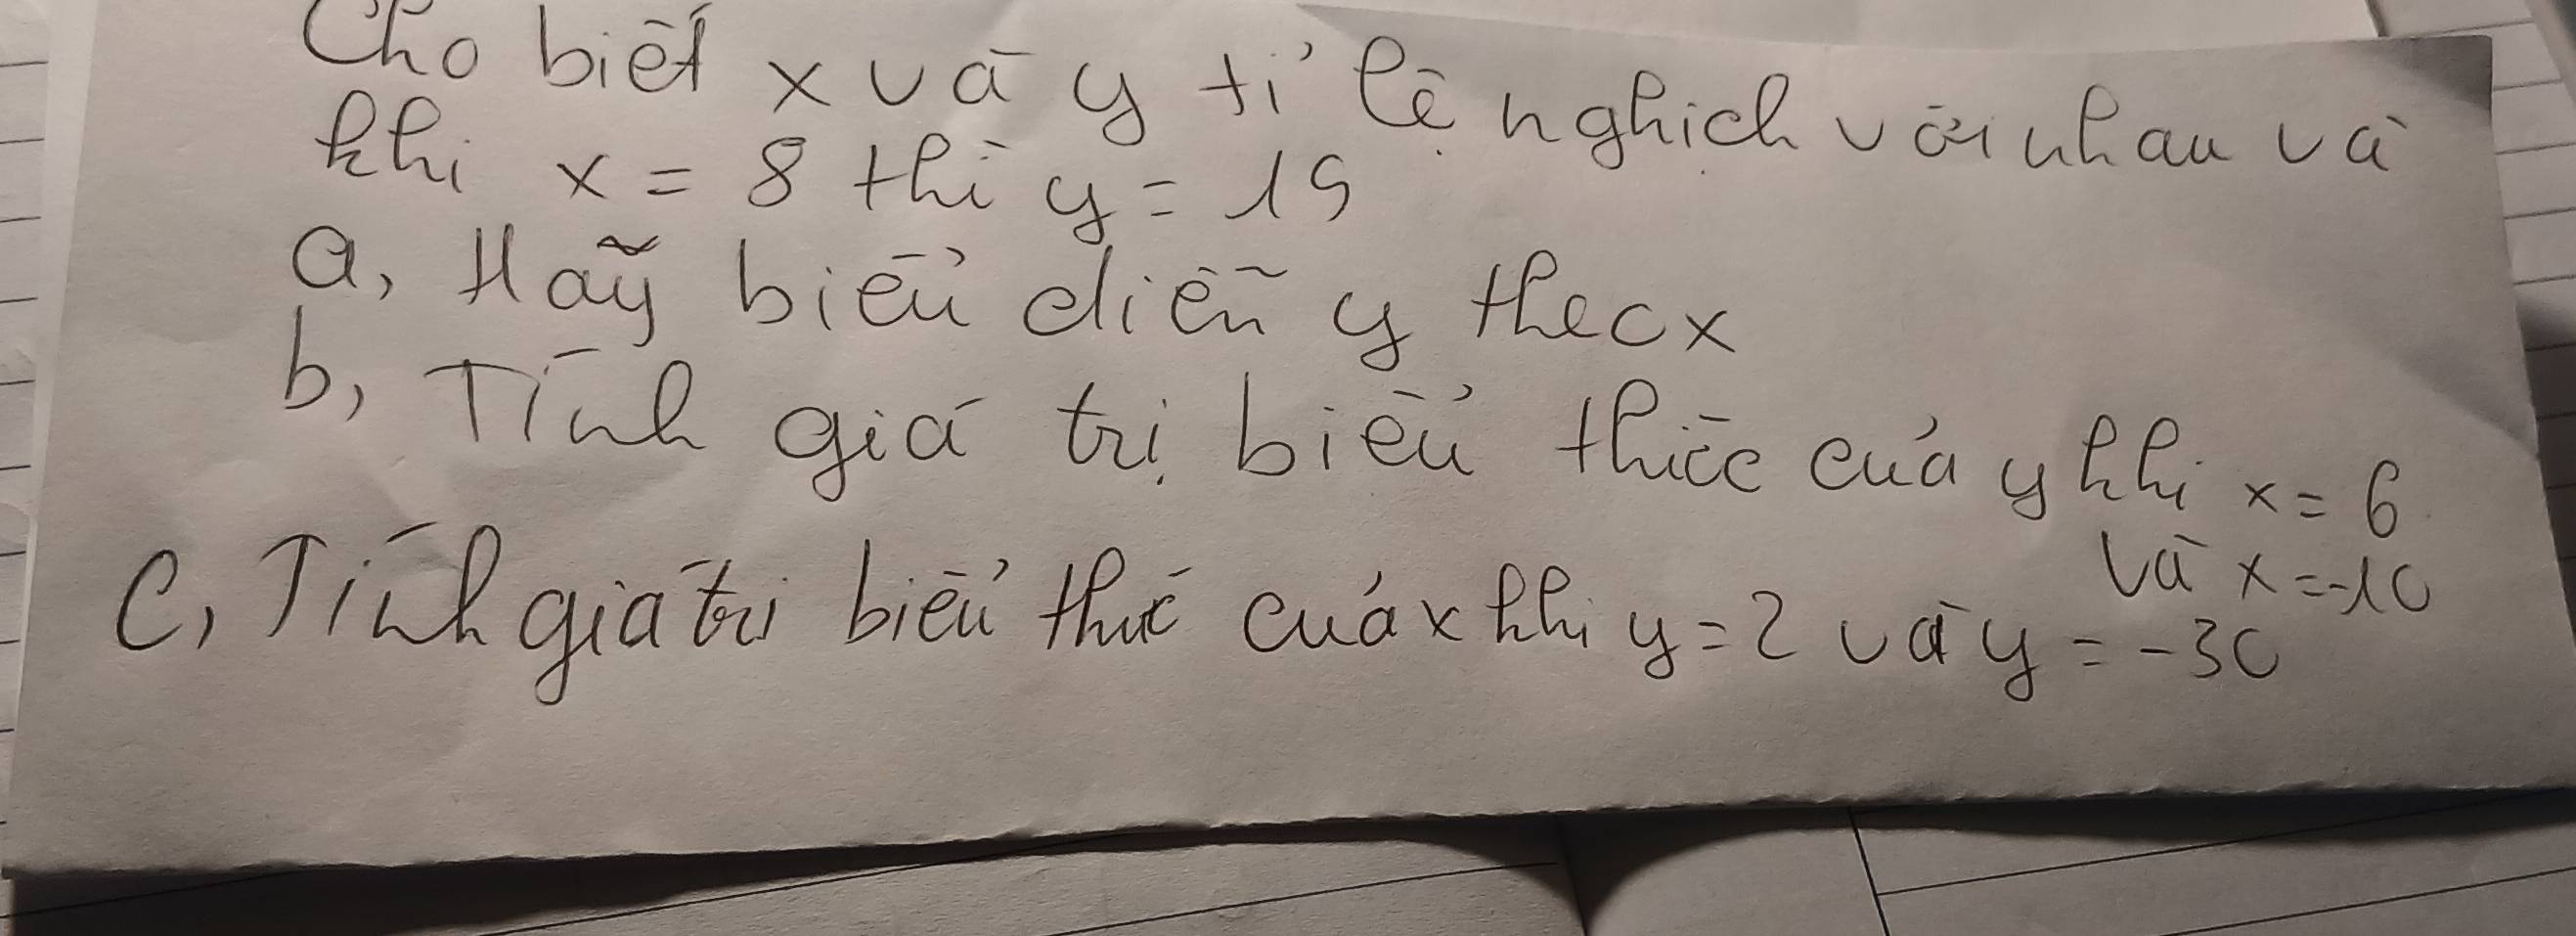 Cho biết x và y tỉ lệ nghịch với nhau và
khi x = 8 thì y = 15
a, Hãy biểu diễn y theo x
b, Tính giá trị biểu thức của y khi x = 6
và x = -10
c, Tính giá trị biểu thức của x khi y = 2 và y = -30